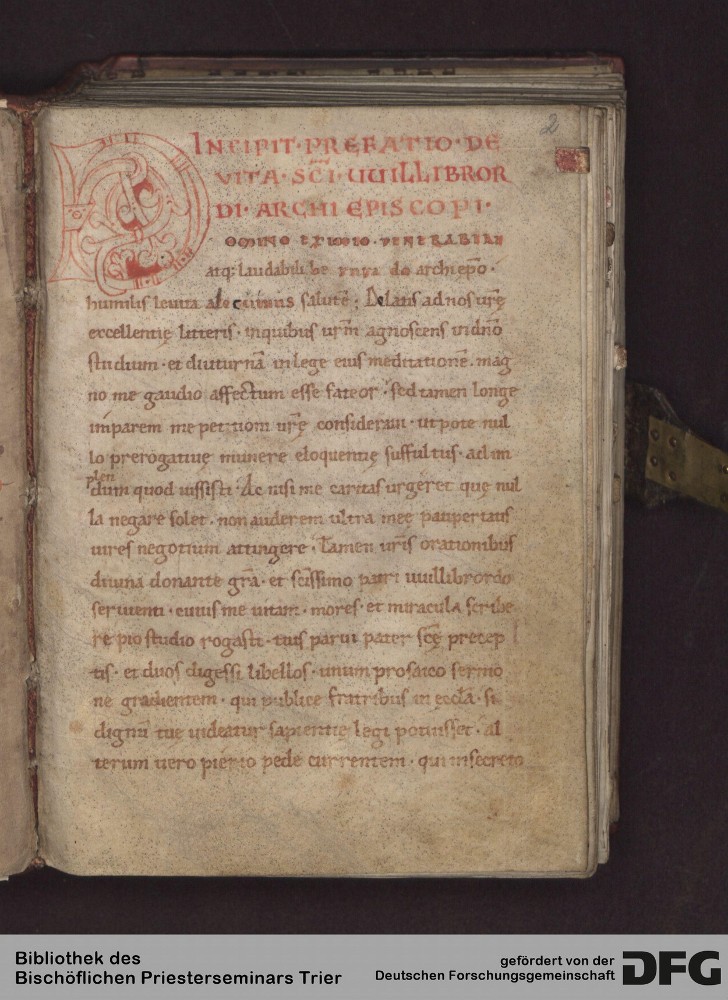 2
INCIPIT·PREFATIO·DE
VITA·SC̄I·UUILLIBROR
DI·ARCHIEPISCOPI·
DOMINO EXIMIO·VENERABILI
atq; laudabili be do archiep̄o·
humilis leuita alecuinus salutē; Delatis ad nos ur̄ę
excellentię litteris· inquibus ur̄m agnoscens in dn̄o
studium· et diuturnā inlege eius meditationē· mag
no me gaudio affectum esse fateor· sed tamen longe
imparem me petitioni ur̄ę consideraui· utpote nul
lo prerogatiuę munere eloquentię suffultus· ad im
plen
dum quod iussisti· Ac nisi me caritas urgeret que nul
la negare solet· non auderem ultra meę paupertatis
uires negotium attingere· Tamen ur̄is orationibus
diuina donante gr̄a· et sc̄issimo patri uuillibrordo
seruienti· cuius me uitam· mores· et miracula scribe
re pio studio rogasti· tuis parui pater sc̄ę precep
tis· et duos digessi libellos· unum prosaico sermo
ne gradientem· qui publice fratribus in ęccl̄a· si
dignū tue uideatur sapientię legi potuisset· al
terum uero pierio pede currentem· qui insecreto
Bibliothek des
Bischöflichen Priesterseminars Trier
gefördert von der
Deutschen Forschungsgemeinschaft
DFG